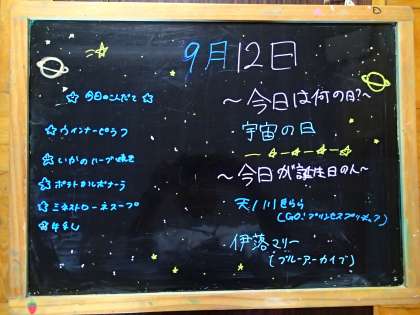 9月12日
☆今日のこんだて☆
☆ウインナーピラフ
☆いかのハーブ焼き
☆ポテトカルボナーラ
☆ミネストローネスープ
☆牛乳
～今日は何の日?～
宇宙の日
～今日が誕生日の人～
天ノ川きらら
(GO!プリンセスプリキュア)
伊落マリー
(ブルーアーカイブ)